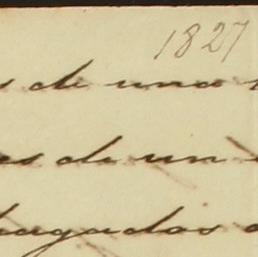 1827
s de una
es de un
hagados